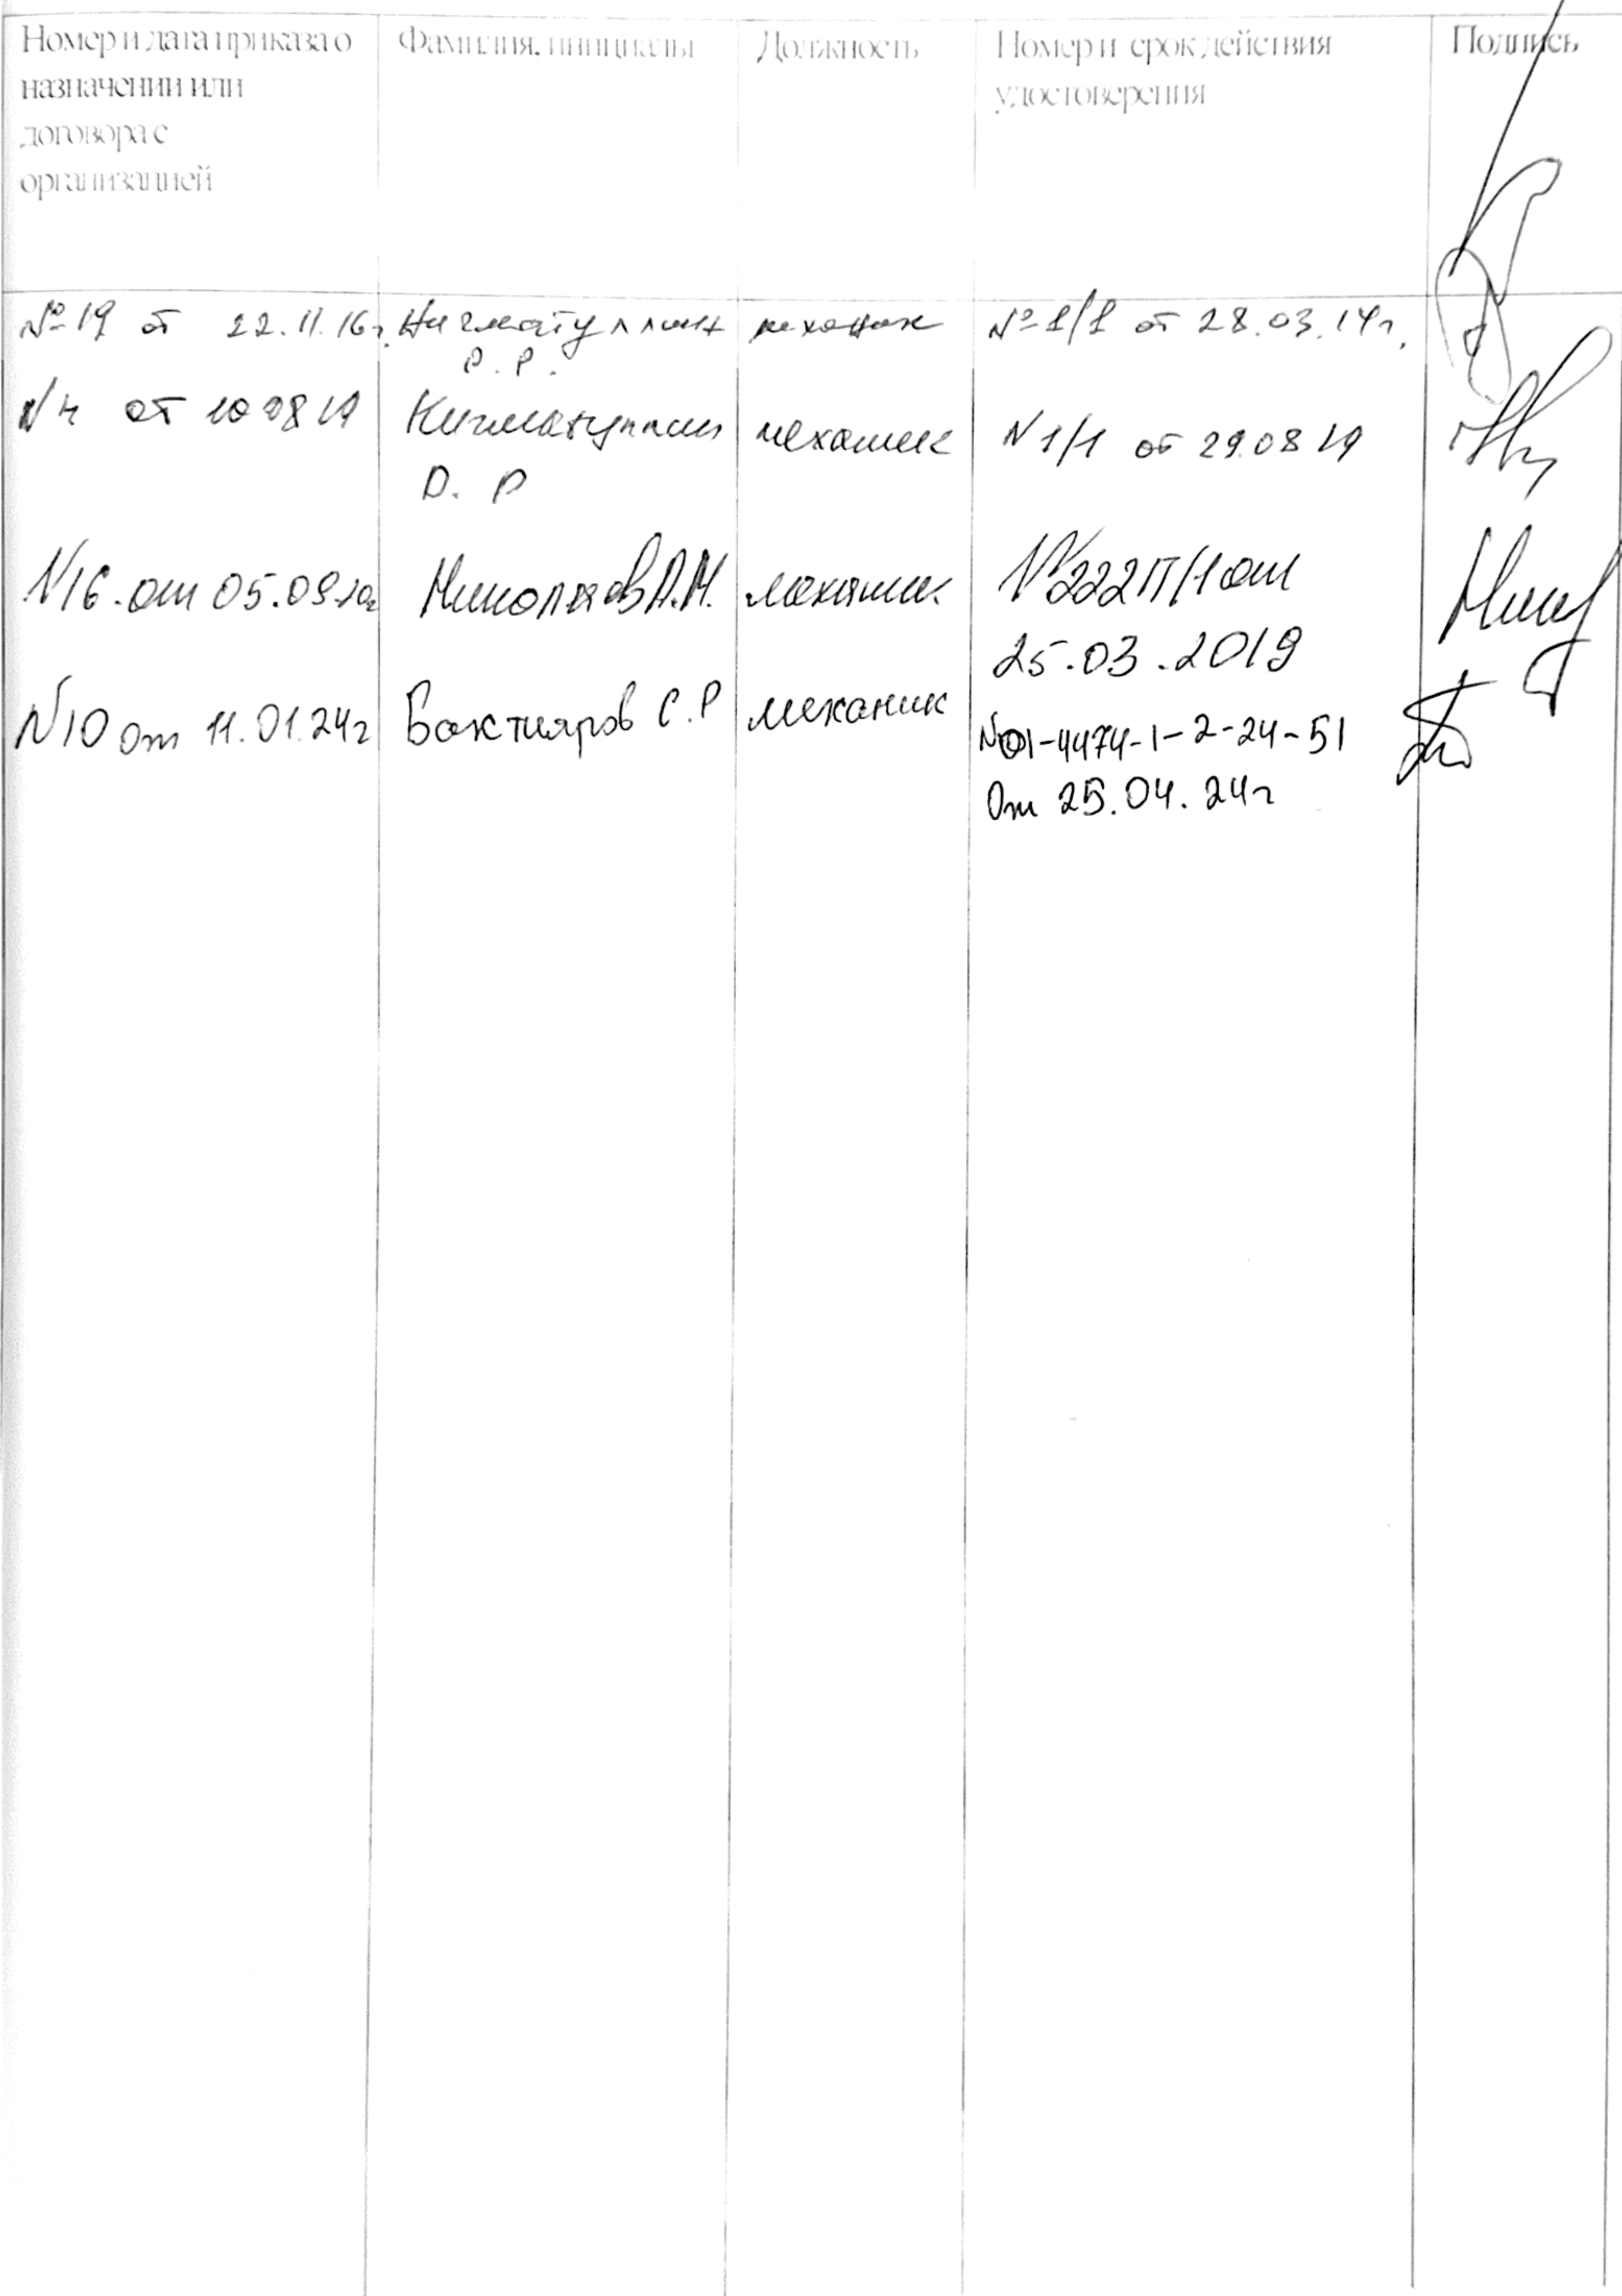 Номер и дата приказа о
назначении или
договора с
организацией
Фамилия, инициалы
Должность
Номер и срок действия
удостоверения
Подпись
№19 от 22.11.16г.
Нигматуллин
Р. Р.
механик
№1/1 от 28.03.14г.
N4 от 10 08 19
Нигматуллин
Р. Р
механик
N 1/1 от 29.08 19
N16. от 05.09.20г
Миколаев А.М.
механик
N222П/1 от
25.03.2019
N10 от 11.01.24г
Бактияров С.Р
механик
N01-4474-1-2-24-51
От 25.04.24г